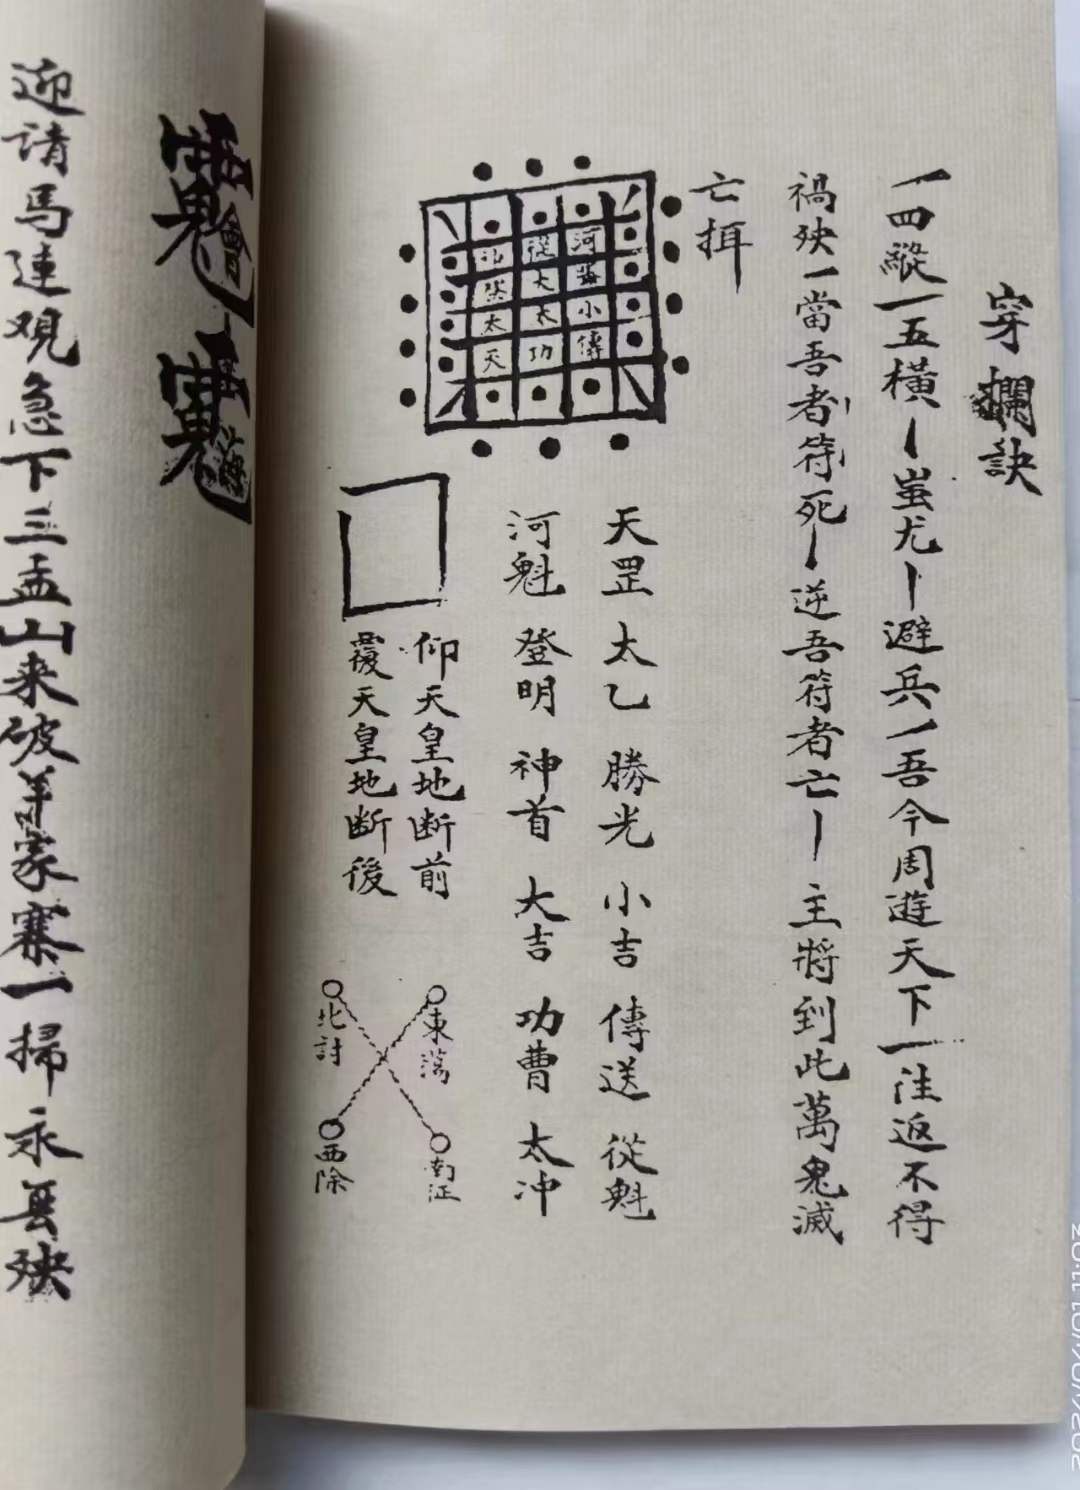 穿攔訣
一四縱一五橫一蚩尤一避兵一吾今周遊天下一注返不得
禍殃一當吾者符死一逆吾符者亡一主將到此萬鬼滅
亡揖
河魁小傳
從太太功
功太天
天罡 太乙 勝光 小吉 傳送 從魁
河魁 登明 神首 大吉 功曹 太冲
仰天皇地断前
覆天皇地断後
東蕩
南征
北討
西除
迎请馬連观急下三孟山来破羊家寨一掃永無殃